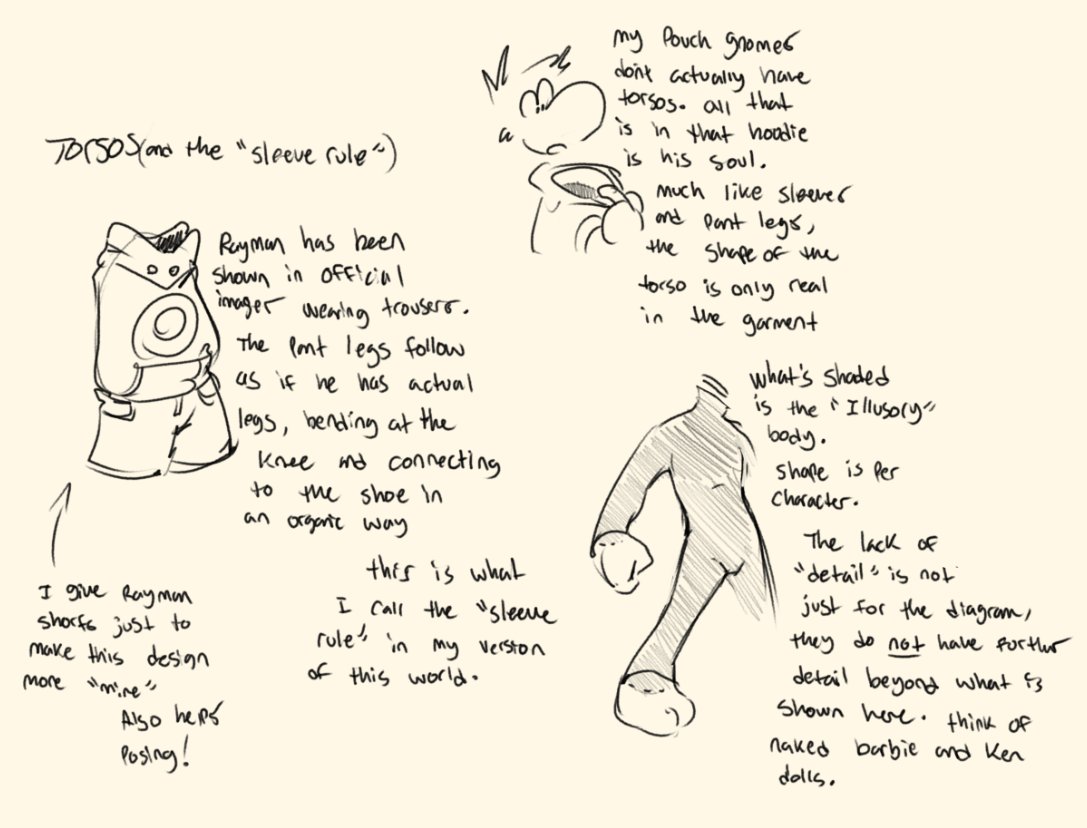 TORSOS (and the "sleeve rule")
Rayman has been
shown in official
images wearing trousers.
The pant legs follow
as if he has actual
legs, bending at the
knee and connecting
to the shoe in
an organic way
this is what
I call the "sleeve
rule" in my version
of this world.
I give Rayman
shorts just to
make this design
more "mine"
Also helps
posing!
my Pouch gnomes
dont actually have
torsos. all that
is in that hoodie
is his soul.
much like sleeves
and pant legs,
the shape of the
torso is only real
in the garment
what's shaded
is the "Illusory"
body.
shape is per
character.
The lack of
"detail" is not
just for the diagram,
they do not have further
detail beyond what is
shown here. think of
naked barbie and Ken
dolls.